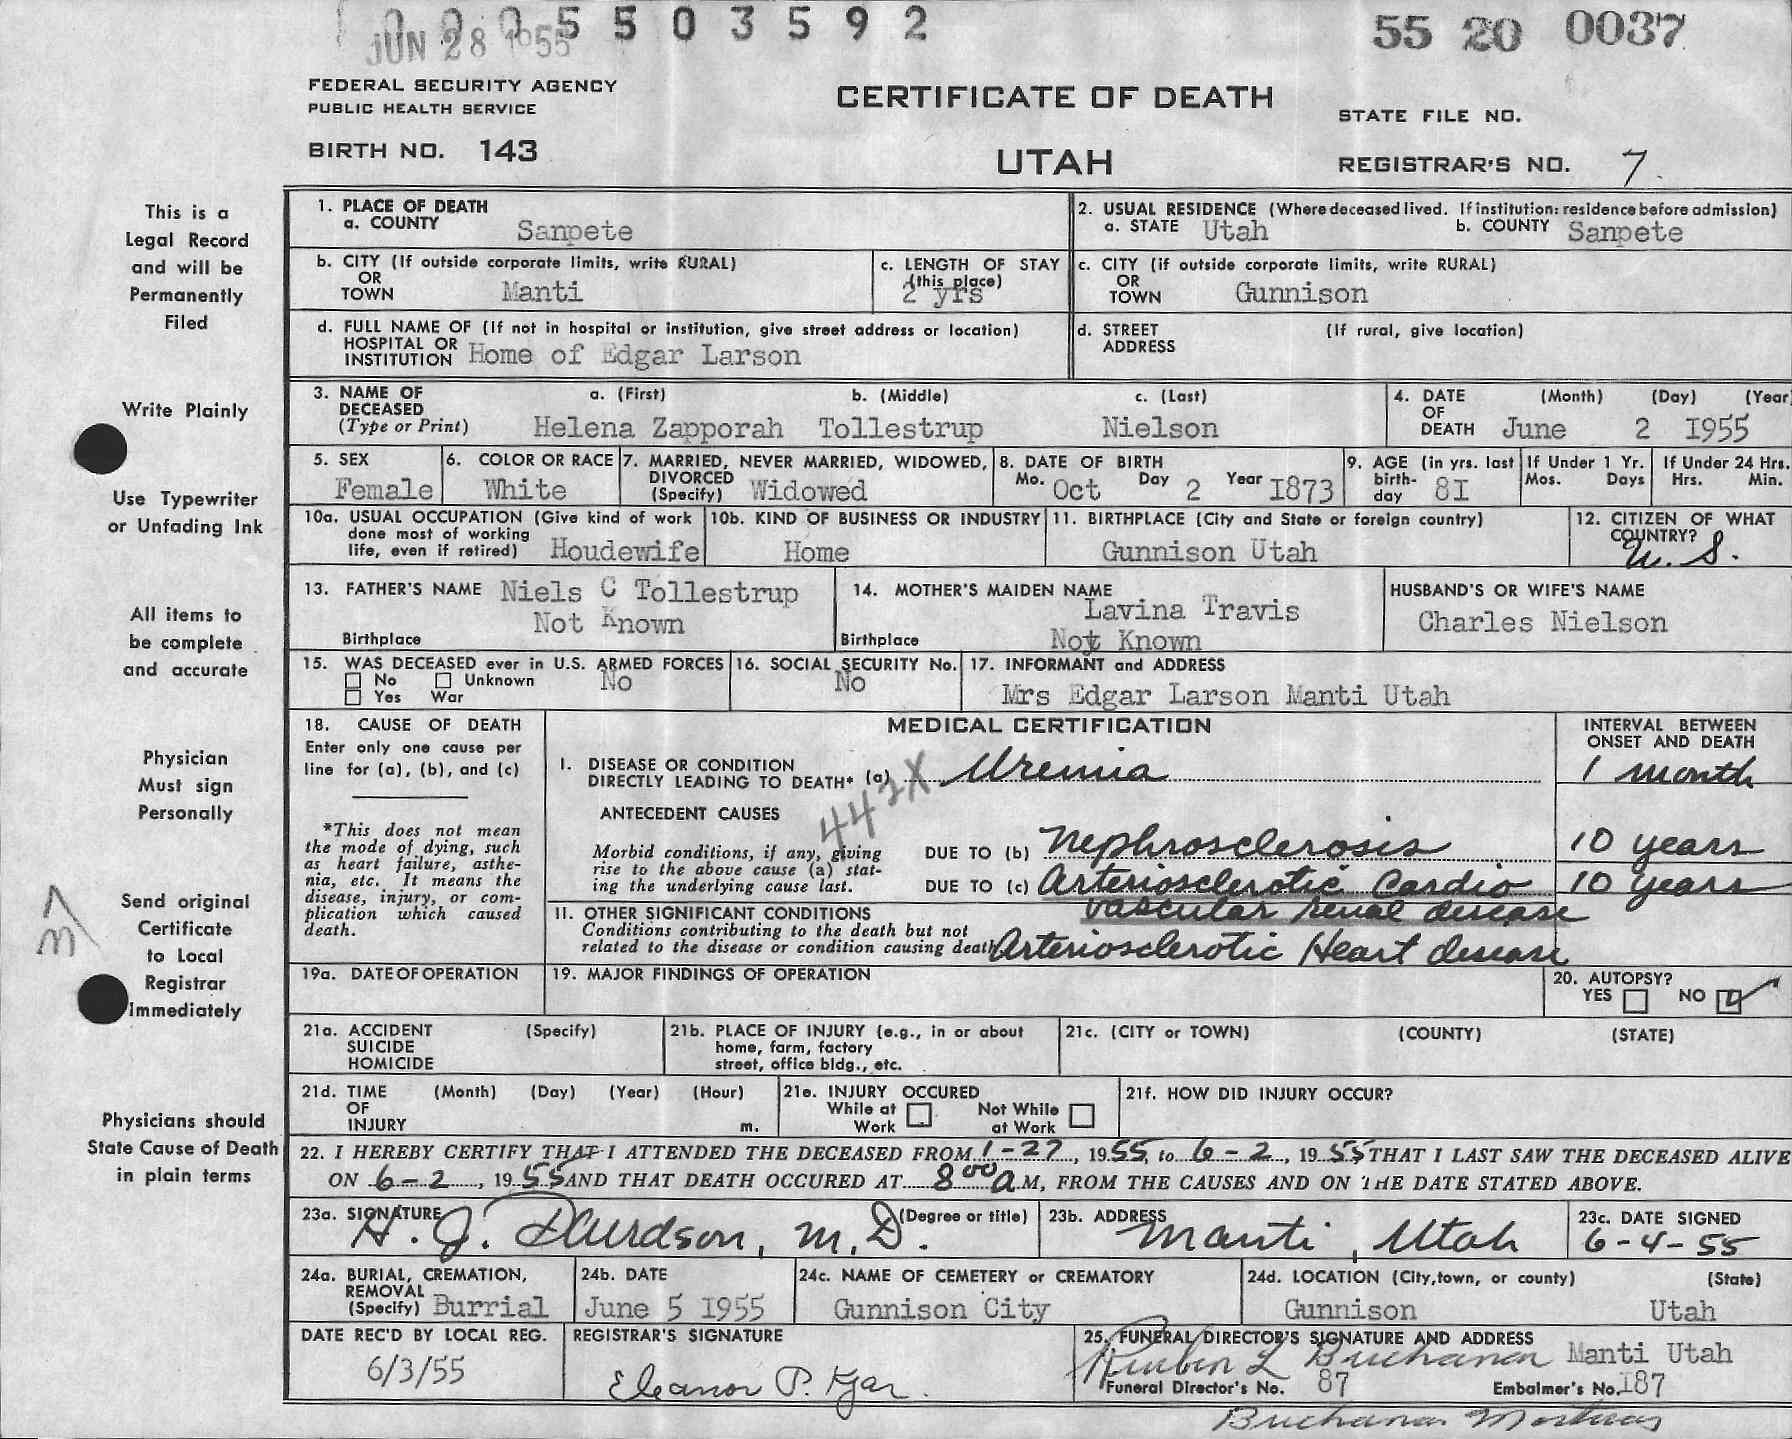 JUN 28 1955
5503592
55 20 0037
FEDERAL SECURITY AGENCY
PUBLIC HEALTH SERVICE
BIRTH NO. 143
CERTIFICATE OF DEATH
UTAH
STATE FILE NO.
REGISTRAR'S NO. 7
This is a
Legal Record
and will be
Permanently
Filed
Write Plainly
Use Typewriter
or Unfading Ink
All items to
be complete
and accurate
Physician
Must sign
Personally
Send original
Certificate
to Local
Registrar
Immediately
Physicians should
State Cause of Death
in plain terms
1. PLACE OF DEATH
a. COUNTY Sanpete
2. USUAL RESIDENCE (Where deceased lived. If institution: residence before admission)
a. STATE Utah b. COUNTY Sanpete
b. CITY (If outside corporate limits, write RURAL)
OR
TOWN Manti
c. LENGTH OF STAY
(this place)
2 yrs
c. CITY (if outside corporate limits, write RURAL)
OR
TOWN Gunnison
d. FULL NAME OF (If not in hospital or institution, give street address or location)
HOSPITAL OR
INSTITUTION Home of Edgar Larson
d. STREET (If rural, give location)
ADDRESS
3. NAME OF a. (First) b. (Middle) c. (Last)
DECEASED
(Type or Print) Helena Zapporah Tollestrup Nielson
4. DATE (Month) (Day) (Year)
OF
DEATH June 2 1955
5. SEX
Female
6. COLOR OR RACE
White
7. MARRIED, NEVER MARRIED, WIDOWED,
DIVORCED
(Specify) Widowed
8. DATE OF BIRTH
Mo. Oct Day 2 Year 1873
9. AGE (in yrs. last
birth-
day 81
If Under 1 Yr.
Mos. Days
If Under 24 Hrs.
Hrs. Min.
10a. USUAL OCCUPATION (Give kind of work
done most of working
life, even if retired) Houdewife
10b. KIND OF BUSINESS OR INDUSTRY
Home
11. BIRTHPLACE (City and State or foreign country)
Gunnison Utah
12. CITIZEN OF WHAT
COUNTRY?
U. S.
13. FATHER'S NAME Niels C Tollestrup
Not Known
Birthplace
14. MOTHER'S MAIDEN NAME
Lavina Travis
Birthplace Not Known
HUSBAND'S OR WIFE'S NAME
Charles Nielson
15. WAS DECEASED ever in U.S. ARMED FORCES
No Unknown No
Yes War
16. SOCIAL SECURITY No.
No
17. INFORMANT and ADDRESS
Mrs Edgar Larson Manti Utah
18. CAUSE OF DEATH
Enter only one cause per
line for (a), (b), and (c)
*This does not mean
the mode of dying, such
as heart failure, asthe-
nia, etc. It means the
disease, injury, or com-
plication which caused
death.
MEDICAL CERTIFICATION
INTERVAL BETWEEN
ONSET AND DEATH
I. DISEASE OR CONDITION
DIRECTLY LEADING TO DEATH* (a) Uremia 1 month
442X
ANTECEDENT CAUSES
Morbid conditions, if any, giving
rise to the above cause (a) stat-
ing the underlying cause last.
DUE TO (b) Nephrosclerosis 10 years
DUE TO (c) Arteriosclerotic Cardio 10 years
vascular renal disease
II. OTHER SIGNIFICANT CONDITIONS
Conditions contributing to the death but not
related to the disease or condition causing death Arteriosclerotic Heart disease
19a. DATE OF OPERATION
19. MAJOR FINDINGS OF OPERATION
20. AUTOPSY?
YES NO
21a. ACCIDENT (Specify)
SUICIDE
HOMICIDE
21b. PLACE OF INJURY (e.g., in or about
home, farm, factory
street, office bldg., etc.
21c. (CITY or TOWN) (COUNTY) (STATE)
21d. TIME (Month) (Day) (Year) (Hour)
OF
INJURY m.
21e. INJURY OCCURED
While at Work Not While at Work
21f. HOW DID INJURY OCCUR?
22. I HEREBY CERTIFY THAT I ATTENDED THE DECEASED FROM 1-27, 1955, to 6-2, 1955 THAT I LAST SAW THE DECEASED ALIVE
ON 6-2, 1955 AND THAT DEATH OCCURED AT 8 00 A M, FROM THE CAUSES AND ON THE DATE STATED ABOVE.
23a. SIGNATURE (Degree or title)
H. J. Davidson, M.D.
23b. ADDRESS
Manti, Utah
23c. DATE SIGNED
6-4-55
24a. BURIAL, CREMATION,
REMOVAL
(Specify) Burrial
24b. DATE
June 5 1955
24c. NAME OF CEMETERY or CREMATORY
Gunnison City
24d. LOCATION (City, town, or county) (State)
Gunnison Utah
DATE REC'D BY LOCAL REG.
6/3/55
REGISTRAR'S SIGNATURE
Eleanor P. Kjar.
25. FUNERAL DIRECTOR'S SIGNATURE AND ADDRESS
Reuben L Buchanan Manti Utah
Funeral Director's No. 87 Embalmer's No. 187
Buchanan Mortuary